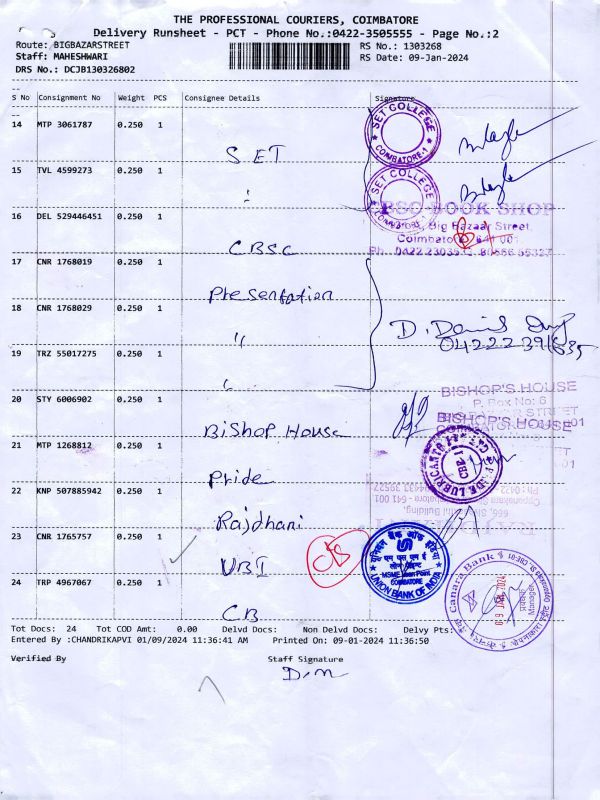 THE PROFESSIONAL COURIERS, COIMBATORE
Delivery Runsheet - PCT - Phone No.:0422-3505555 - Page No.:2
Route: BIGBAZARSTREET
RS No.: 1303268
Staff: MAHESHWARI
RS Date: 09-Jan-2024
DRS No.: DCJB130326802
S No Consignment No Weight PCS Consignee Details Signature
14 MTP 3061787 0.250 1 SET
SET COLLEGE
COIMBATORE-1
15 TVL 4599273 0.250 1 "
SET COLLEGE
16 DEL 529446451 0.250 1 CBSC
BSC BOOK SHOP
Big Bazaar Street,
Coimbatore 641 001
17 CNR 1768019 0.250 1 Presentation
18 CNR 1768029 0.250 1 "
19 TRZ 55017275 0.250 1 "
D.
20 STY 6006902 0.250 1 Bishop House
BISHOP'S HOUSE
P. Box No: 6
BISHOP'S HOUSE
21 MTP 1268812 0.250 1 Pride
22 KNP 507885942 0.250 1 Rajdhani
23 CNR 1765757 0.250 1 UBI
यूनियन बैंक ऑफ इंडिया
COIMBATORE
UNION BANK OF INDIA
24 TRP 4967067 0.250 1 CB
Canara Bank
Manager
Tot Docs: 24 Tot COD Amt: 0.00 Delvd Docs: Non Delvd Docs: Delvy Pts:
Entered By :CHANDRIKAPVI 01/09/2024 11:36:41 AM Printed On: 09-01-2024 11:36:50
Verified By
Staff Signature